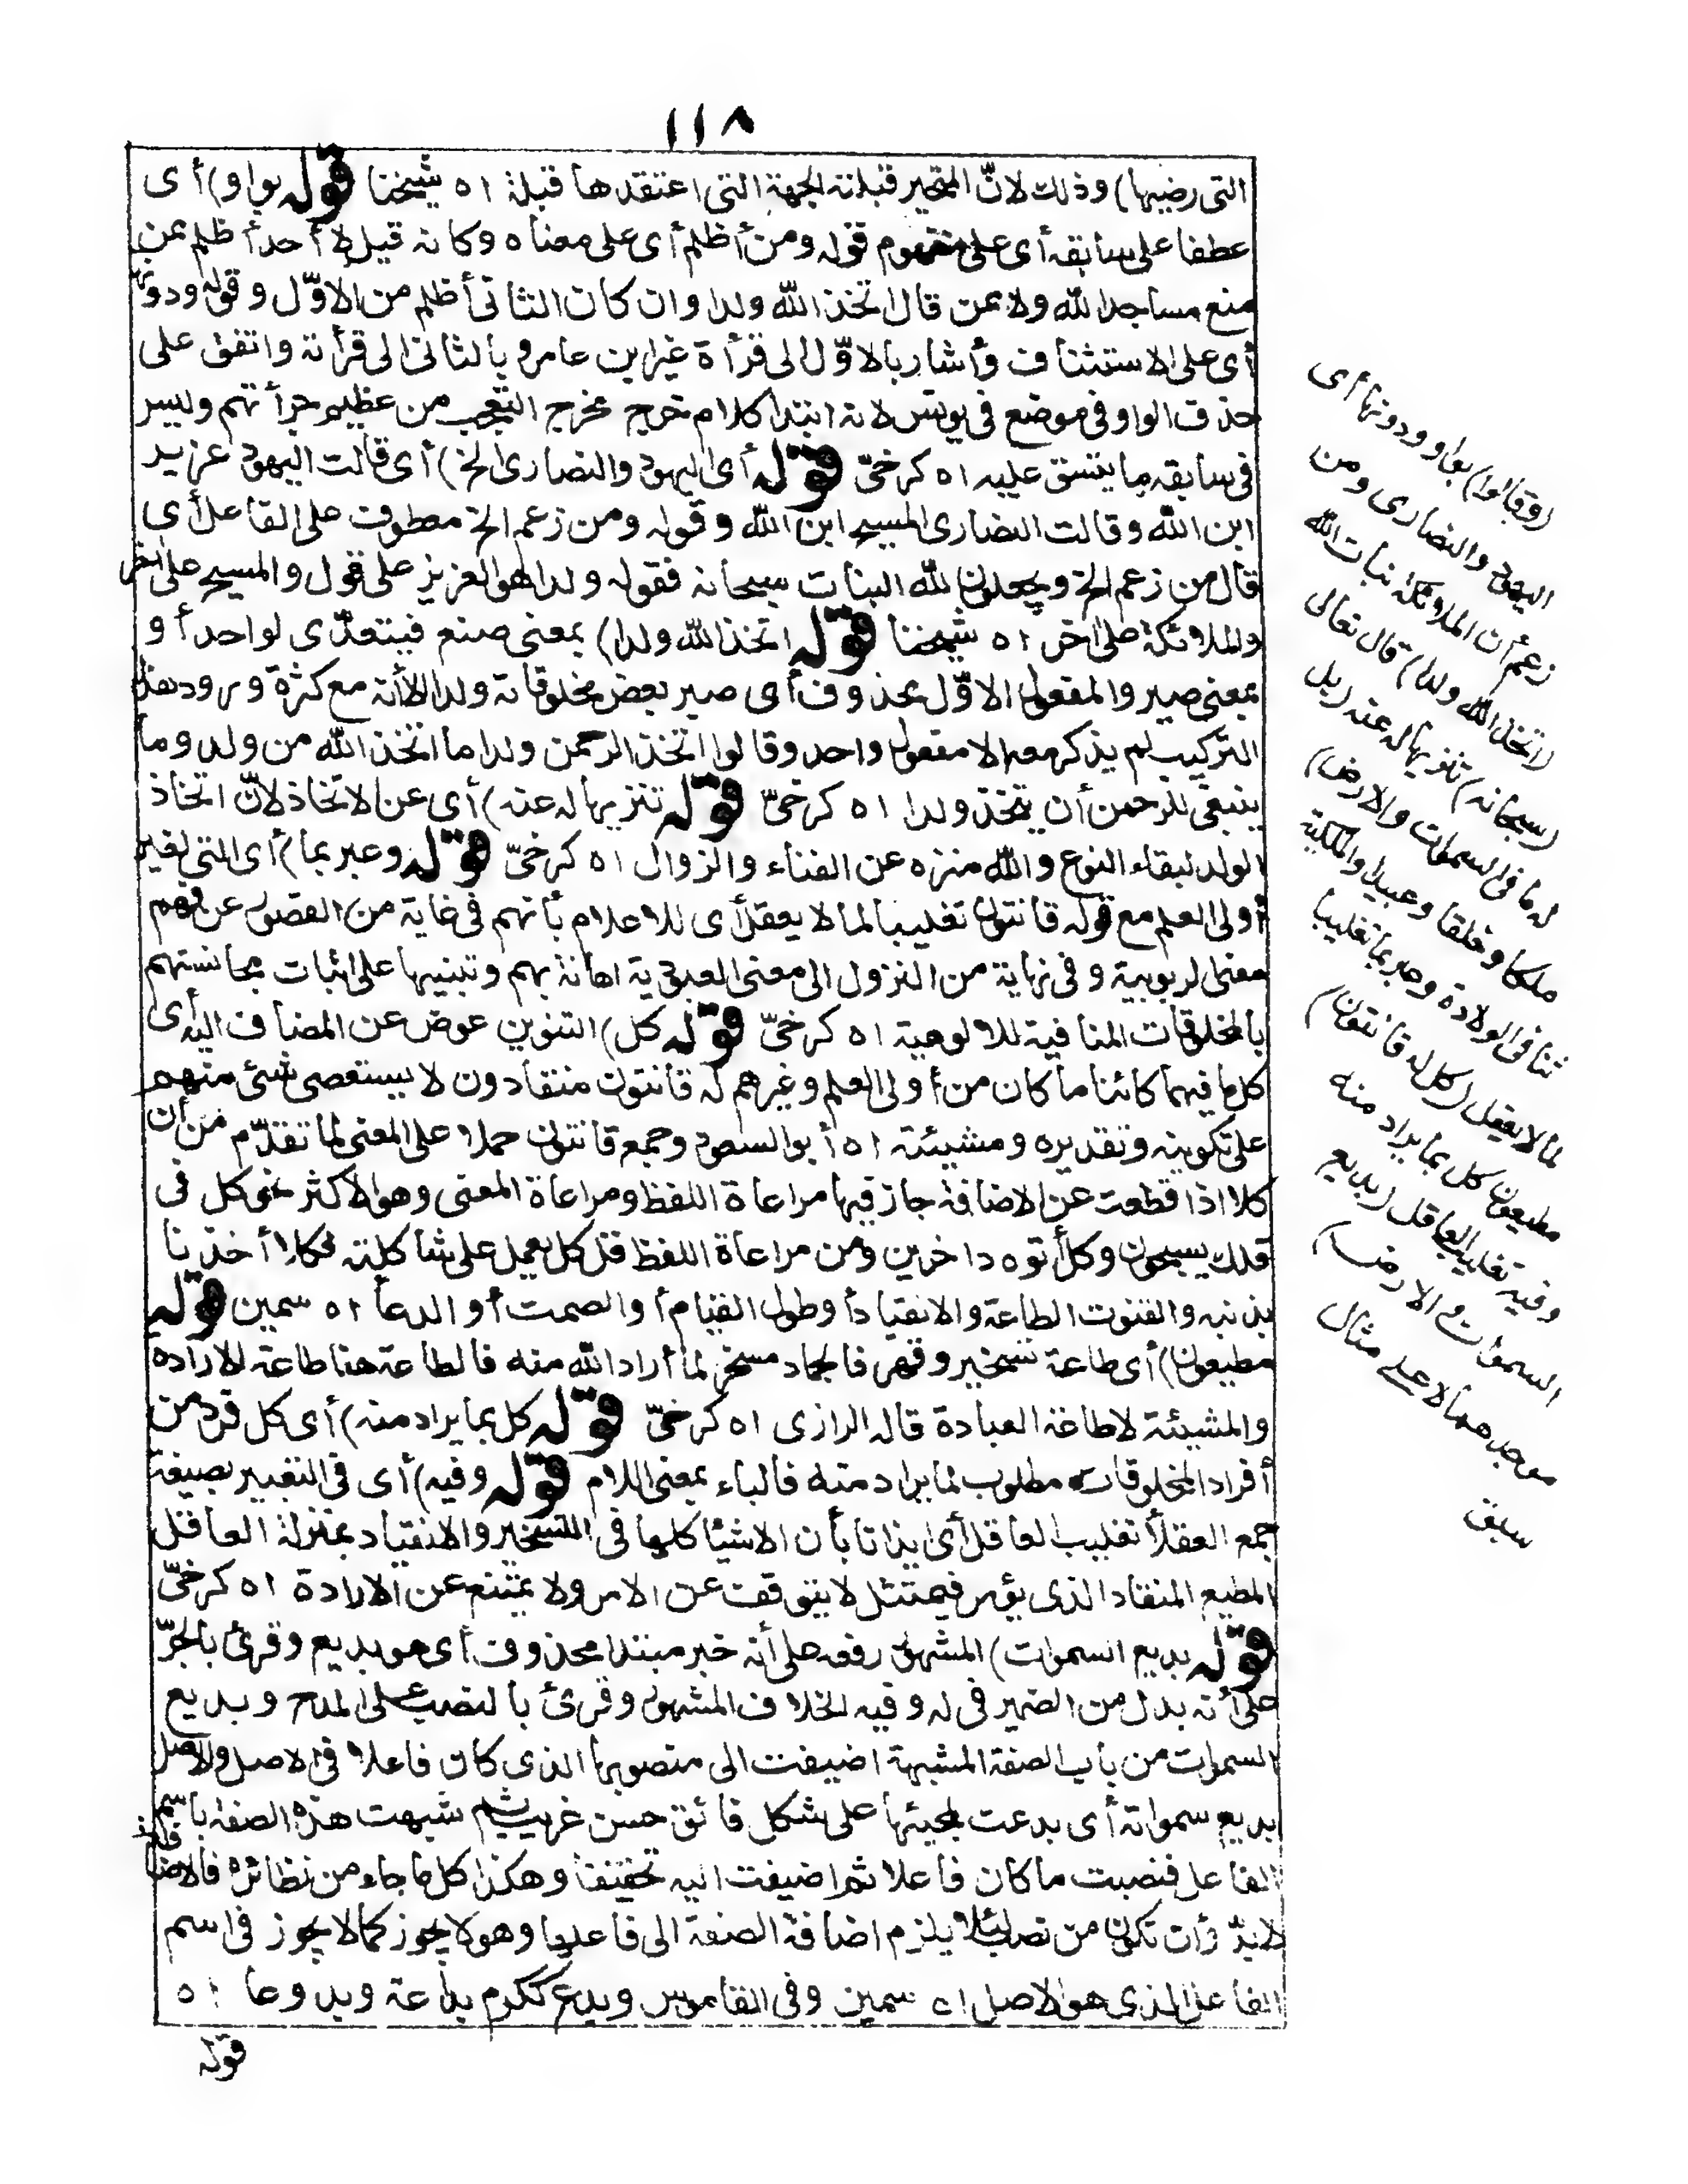 ١١٨
التى رضيها) وذلك لانّ المتحير قبلته الجهة التى اعتقدها قبلة اه شيخنا قوله بواو) أى
عطفا على سابقه أى على مفهوم قوله ومن أظلم أى على معناه وكانه قيل لا أحد أظلم ممن
منع مساجد الله ولا ممن قال اتخذ الله ولدا وان كان الثانى أظلم من الاوّل وقوله ودونها
أى على الاستئناف وأشار بالاوّل الى قرأة غير ابن عامر وبالثانى الى قرأته واتفق على
حذف الواو فى موضع فى يونس لانه ابتدا كلام خرج مخرج التعجب من عظيم جرأتهم وليس
فى سابقه ما يتسق عليه اه كرخىّ قوله أى اليهود والنصارى الخ) أى قالت اليهود عزير
ابن الله وقالت النصارى المسيح ابن الله وقوله ومن زعم الخ معطوف على الفاعل أى
قال من زعم الخ ويجعلون لله البنات سبحانه فقوله ولدا هو العزيز على قول والمسيح على آخر
والملائكة على آخر اه شيخنا قوله اتخذ الله ولدا) بمعنى صنع فيتعدّى لواحد أو
بمعنى صير والمفعول الاوّل محذوف أى صير بعض مخلوقاته ولدا الأنه مع كثرة ورود هذا
التركيب لم يذكر معه الا مفعول واحد وقالوا اتخذ الرحمن ولدا ما اتخذ الله من ولد وما
ينبغى للرحمن أن يتخذ ولدا اه كرخىّ قوله تنزيها له عنه) أى عن الاتخاذ لانّ اتخاذ
الولد لبقاء النوع والله منزه عن الفناء والزوال اه كرخىّ قوله وعبر بما) أى التى لغير
أولى العلم مع قوله قانتون تغليبا لما لا يعقل أى للاعلام بأنهم فى غاية من القصور عن فهم
معنى الربوبية وفى نهاية من النزول الى معنى العبودية اهانة بهم وتنبيها على اثبات مجانستهم
بالمخلوقات المنافية للالوهية اه كرخىّ قوله كل) التنوين عوض عن المضاف اليه أى
كل ما فيهما كائنا ما كان من أولى العلم وغيرهم له قانتون منقادون لا يستعصى شئ منهم
على تكوينه وتقديره ومشيئته اه أبو السعود وجمع قانتون حملا على المعنى لما تقدّم من أن
كلا اذا قطعت عن الاضافة جاز فيها مراعاة اللفظ ومراعاة المعنى وهو الاكثر نحو كل فى
فلك يسبحون وكل أتوه داخرين ومن مراعاة اللفظ قل كل يعمل على شاكلته فكلا أخذنا
بذنبه والقنوت الطاعة والانقياد أو طول القيام أو الصمت أو الدعأ اه سمين قوله
مطيعون) أى طاعة تسخير وقهر فالجماد مسخر لما أراد الله منه فالطاعة هنا طاعة للارادة
والمشيئة لا طاعة العبادة قاله الرازى اه كرخىّ قوله كل بما يراد منه) أى كل فرد من
أفراد المخلوقات مطلوب لما يراد منه فالباء بمعنى اللام قوله وفيه) أى فى التعبير بصيغة
جمع العقلأ تغليب العاقل أى ايذانا بأن الاشيا كلها فى التسخير والانقياد بمنزلة العاقل
المطيع المنقاد الذى يؤمر فيمتثل لا يتوقف عن الامر ولا يمتنع عن الارادة اه كرخىّ
قوله بديع السموات) المشهور رفعه على أنه خبر مبتدا محذوف أى هو بديع وقرئ بالجرّ
على أنه بدل من الضمير فى له وفيه الخلاف المشهور وقرئ بالنصب على المدح وبديع
السموات من باب الصفة المشبهة اضيفت الى منصوبها الذى كان فاعلا فى الاصل والاصل
بديع سمواته أى بدعت لمجيئها على شكل فائق حسن غريب ثم شبهت هذه الصفة باسم
الفاعل فنصبت ما كان فاعلا ثم اضيفت اليه تخفيفا وهكذا كل ما جاء من نظائره فالاضافة
لابدّ وأن تكون من نصب لئلا يلزم اضافة الصفة الى فاعلها وهو لا يجوز كما لا يجوز فى اسم
الفاعل الذى هو الاصل اه سمين وفى القاموس وبدع ككرم بداعة وبدوعا اه
قوله
(وقالوا) بواو ودونها أى
اليهود والنصارى ومن
زعم أن الملائكة بنات الله
(اتخذ الله ولدا) قال تعالى
(سبحانه) تنزيها له عنه (بل
له ما فى السموات والارض)
ملكا وخلقا وعبيدا والملكية
تنافى الولادة وعبر بما تغليبا
لما لا يعقل (كل له قانتون)
مطيعون كل بما يراد منه
وفيه تغليب العاقل (بديع
السموات والارض)
موجدهما لا على مثال
سبق